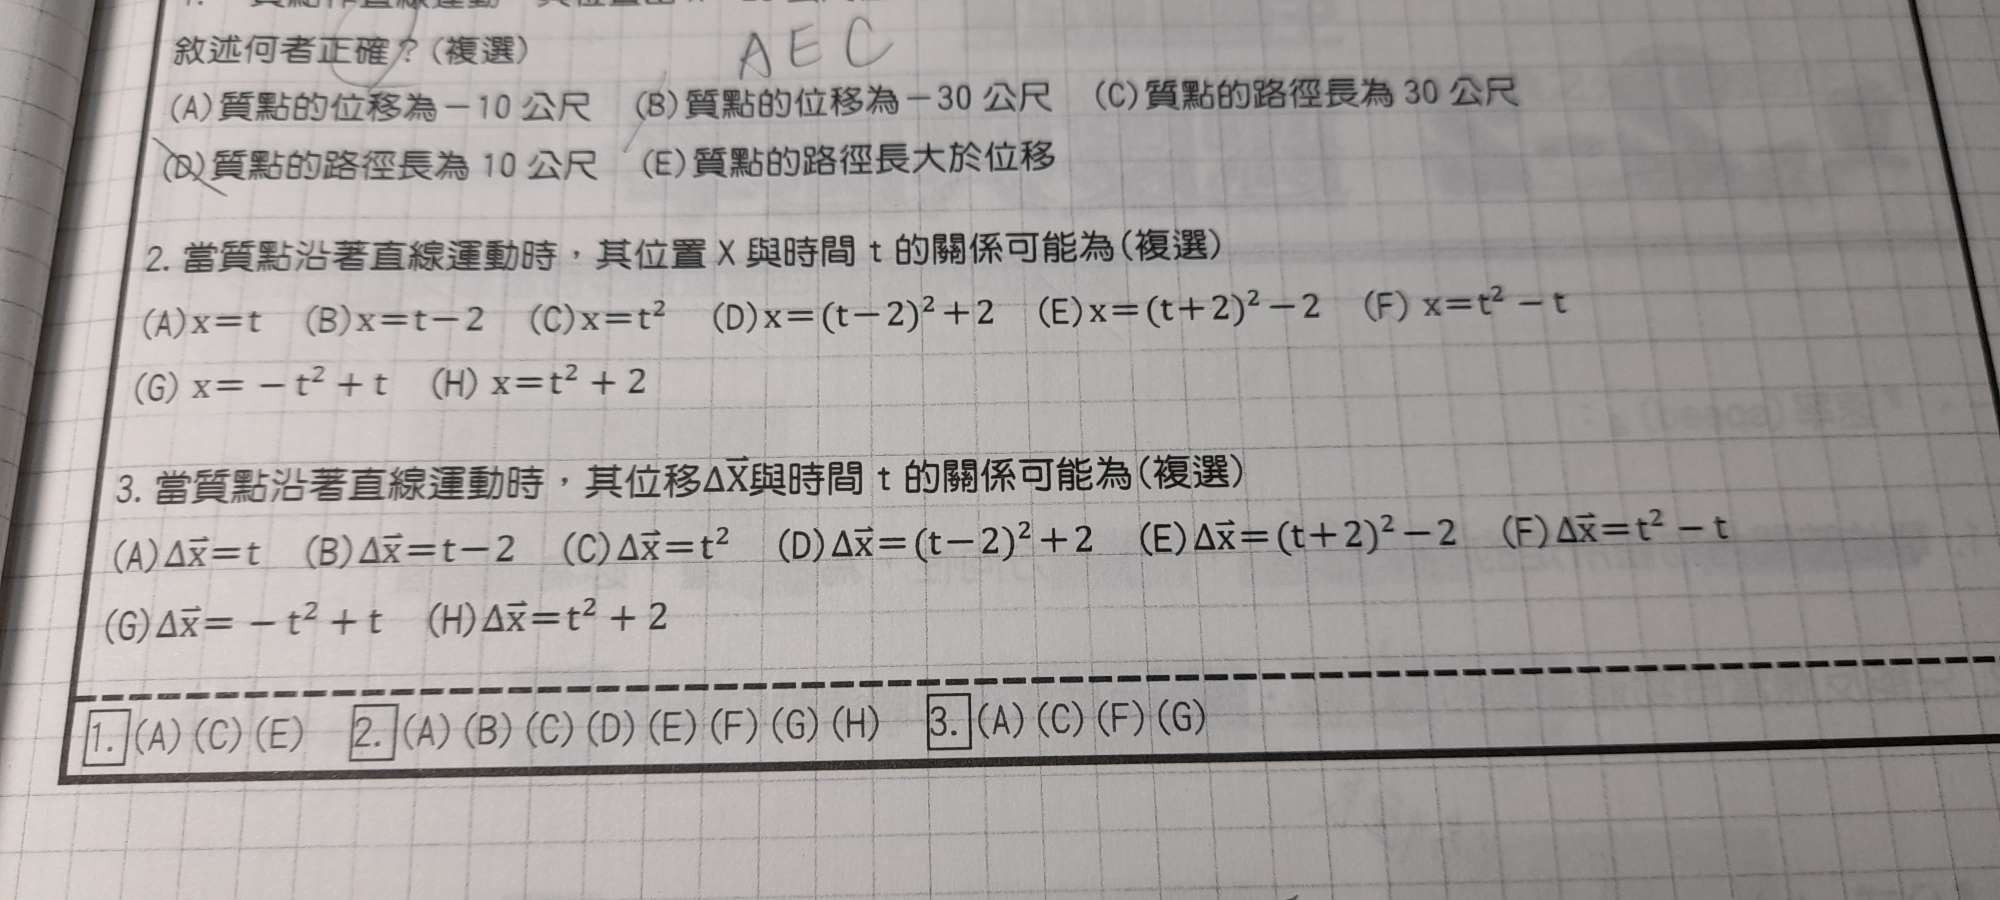 敘述何者正確？(複選)
AEC
(A)質點的位移為－10 公尺 (B)質點的位移為－30 公尺 (C)質點的路徑長為 30 公尺
(D)質點的路徑長為 10 公尺 (E)質點的路徑長大於位移
2. 當質點沿著直線運動時，其位置 X 與時間 t 的關係可能為(複選)
(A)x=t (B)x=t−2 (C)x=t² (D)x=(t−2)²+2 (E)x=(t+2)²−2 (F) x=t² −t
(G) x= −t² + t (H) x=t² + 2
3. 當質點沿著直線運動時，其位移Δx⃗與時間 t 的關係可能為(複選)
(A)Δx⃗=t (B)Δx⃗=t−2 (C)Δx⃗=t² (D)Δx⃗=(t−2)²+2 (E)Δx⃗=(t+2)²−2 (F)Δx⃗=t² −t
(G)Δx⃗= −t² + t (H)Δx⃗=t² + 2
1. (A) (C) (E) 2. (A) (B) (C) (D) (E) (F) (G) (H) 3. (A) (C) (F) (G)